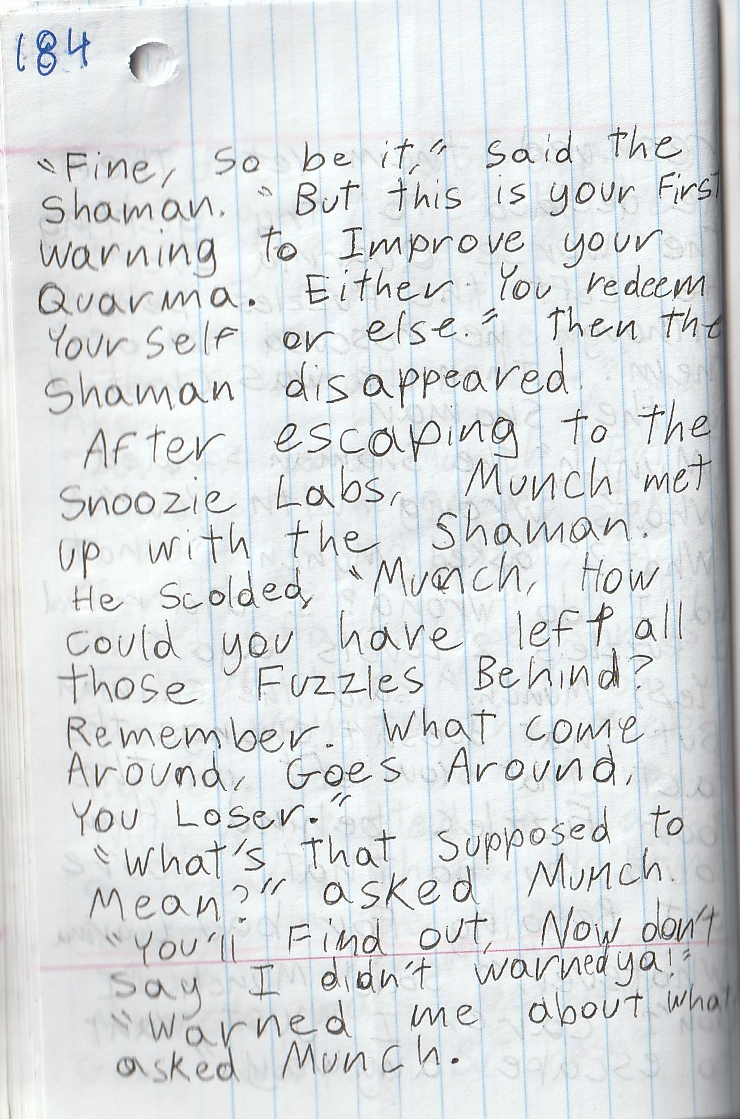 184
"Fine, so be it," said the
Shaman. "But this is your First
warning to Improve your
Quarma. Either You redeem
Your Self or else." Then the
Shaman disappeared.
After escaping to the
Snoozie Labs, Munch met
up with the Shaman.
He Scolded, "Munch, How
could you have left all
those Fuzzles Behind?
Remember. What come
Around, Goes Around,
You Loser."
"What's that supposed to
Mean?" asked Munch.
"You'll Find out, Now don't
say I didn't warned ya!"
"Warned me about wha
asked Munch.